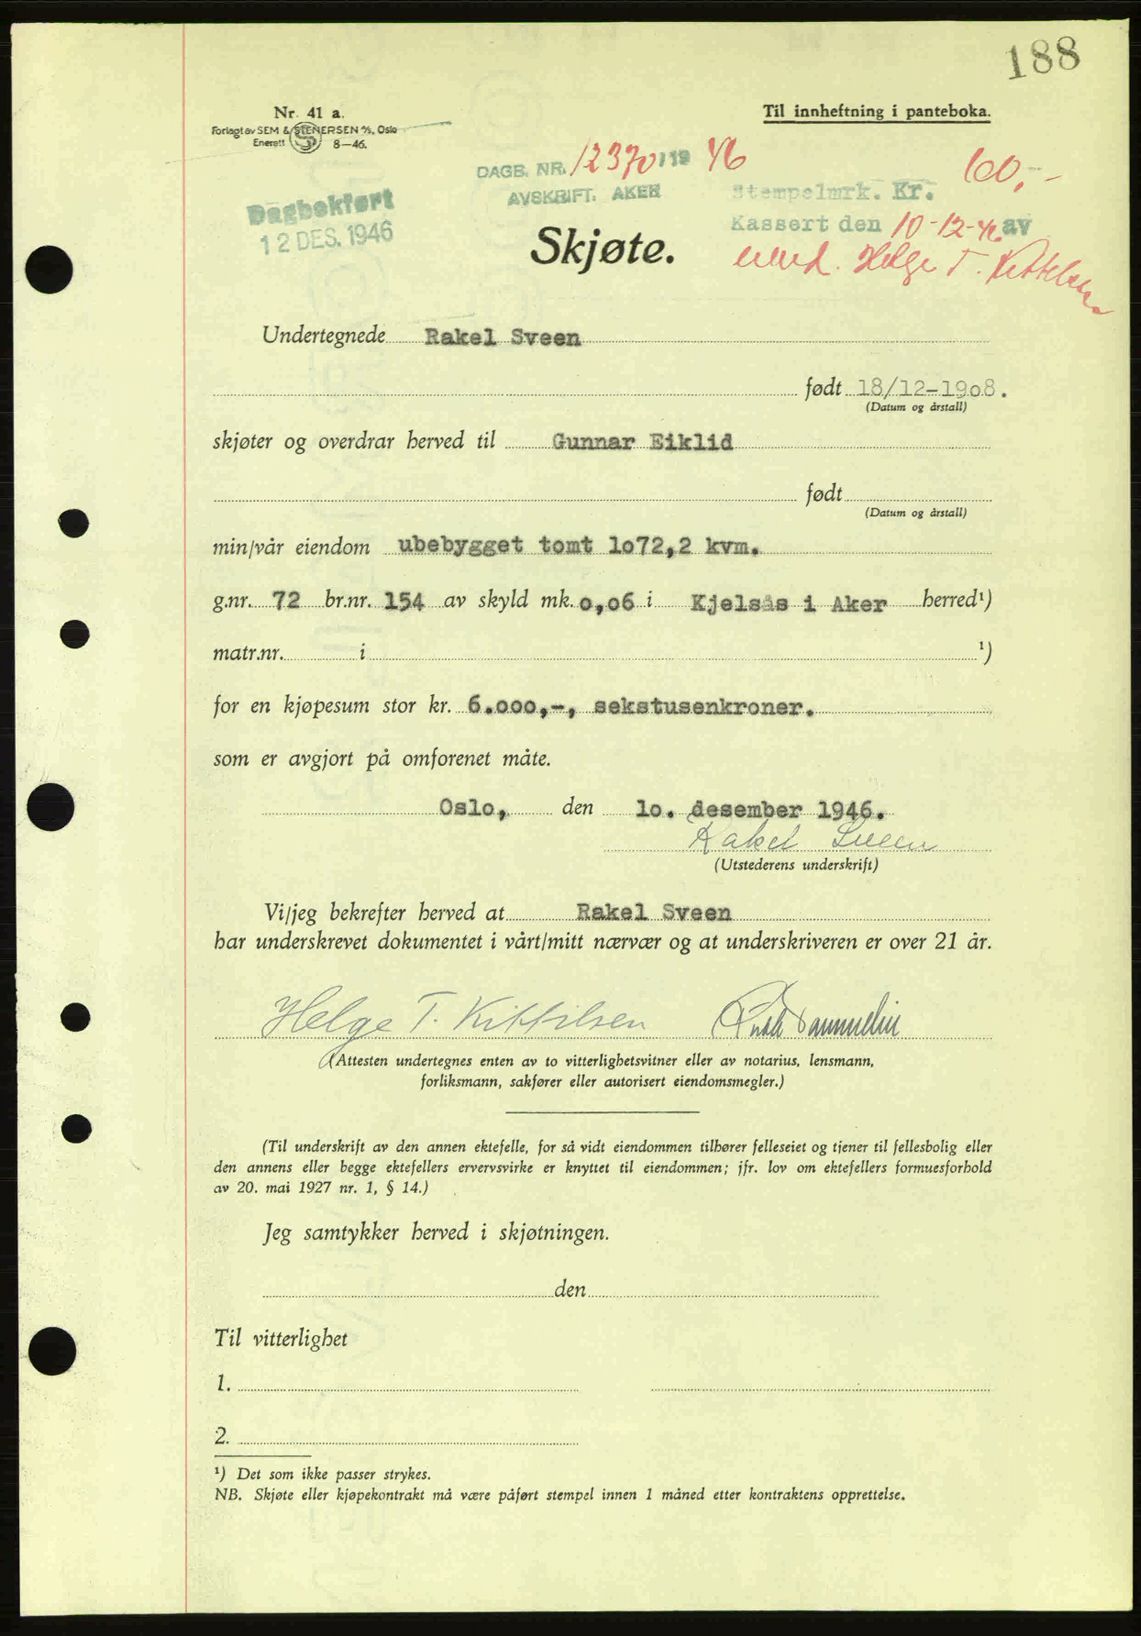 188
Nr. 41 a.
Forlagt av SEM & STENERSEN A/S, Oslo
Enerett 8—46.
Til innheftning i panteboka.
DAGB. NR. 12370/19 46
AVSKRIFT. AKER
Stempelmrk. Kr. 60,-
Kassert den 10-12-46 av
Helge T. Kittilsen
Dagbokført
12 DES. 1946
Skjøte.
Undertegnede Rakel Sveen
født 18/12-19o8.
(Datum og årstall)
skjøter og overdrar herved til Gunnar Eiklid
født
(Datum og årstall)
min/vår eiendom ubebygget tomt 1o72,2 kvm.
g.nr. 72 br.nr. 154 av skyld mk. o,o6 i Kjelsås i Aker herred¹)
matr.nr. i ¹)
for en kjøpesum stor kr. 6.ooo,-, sekstusenkroner.
som er avgjort på omforenet måte.
Oslo, den 1o. desember 1946.
Rakel Sveen
(Utstederens underskrift)
Vi/jeg bekrefter herved at Rakel Sveen
har underskrevet dokumentet i vårt/mitt nærvær og at underskriveren er over 21 år.
Helge T. Kittilsen
(Attesten undertegnes enten av to vitterlighetsvitner eller av notarius, lensmann,
forliksmann, sakfører eller autorisert eiendomsmegler.)
(Til underskrift av den annen ektefelle, for så vidt eiendommen tilhører felleseiet og tjener til fellesbolig eller
den annens eller begge ektefellers ervervsvirke er knyttet til eiendommen; jfr. lov om ektefellers formuesforhold
av 20. mai 1927 nr. 1, § 14.)
Jeg samtykker herved i skjøtningen.
den
Til vitterlighet
1.
2.
¹) Det som ikke passer strykes.
NB. Skjøte eller kjøpekontrakt må være påført stempel innen 1 måned etter kontraktens opprettelse.